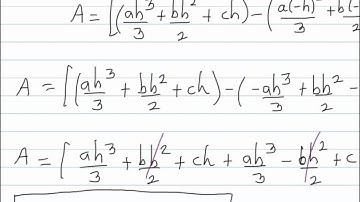 A = [(ah³/3 + bh²/2 + ch) - (a(-h)³/3 + b(-
A = [(ah³/3 + bh²/2 + ch) - (-ah³/3 + bh²/2 -
A = [ ah³/3 + bh²/2 + ch + ah³/3 - bh²/2 + c